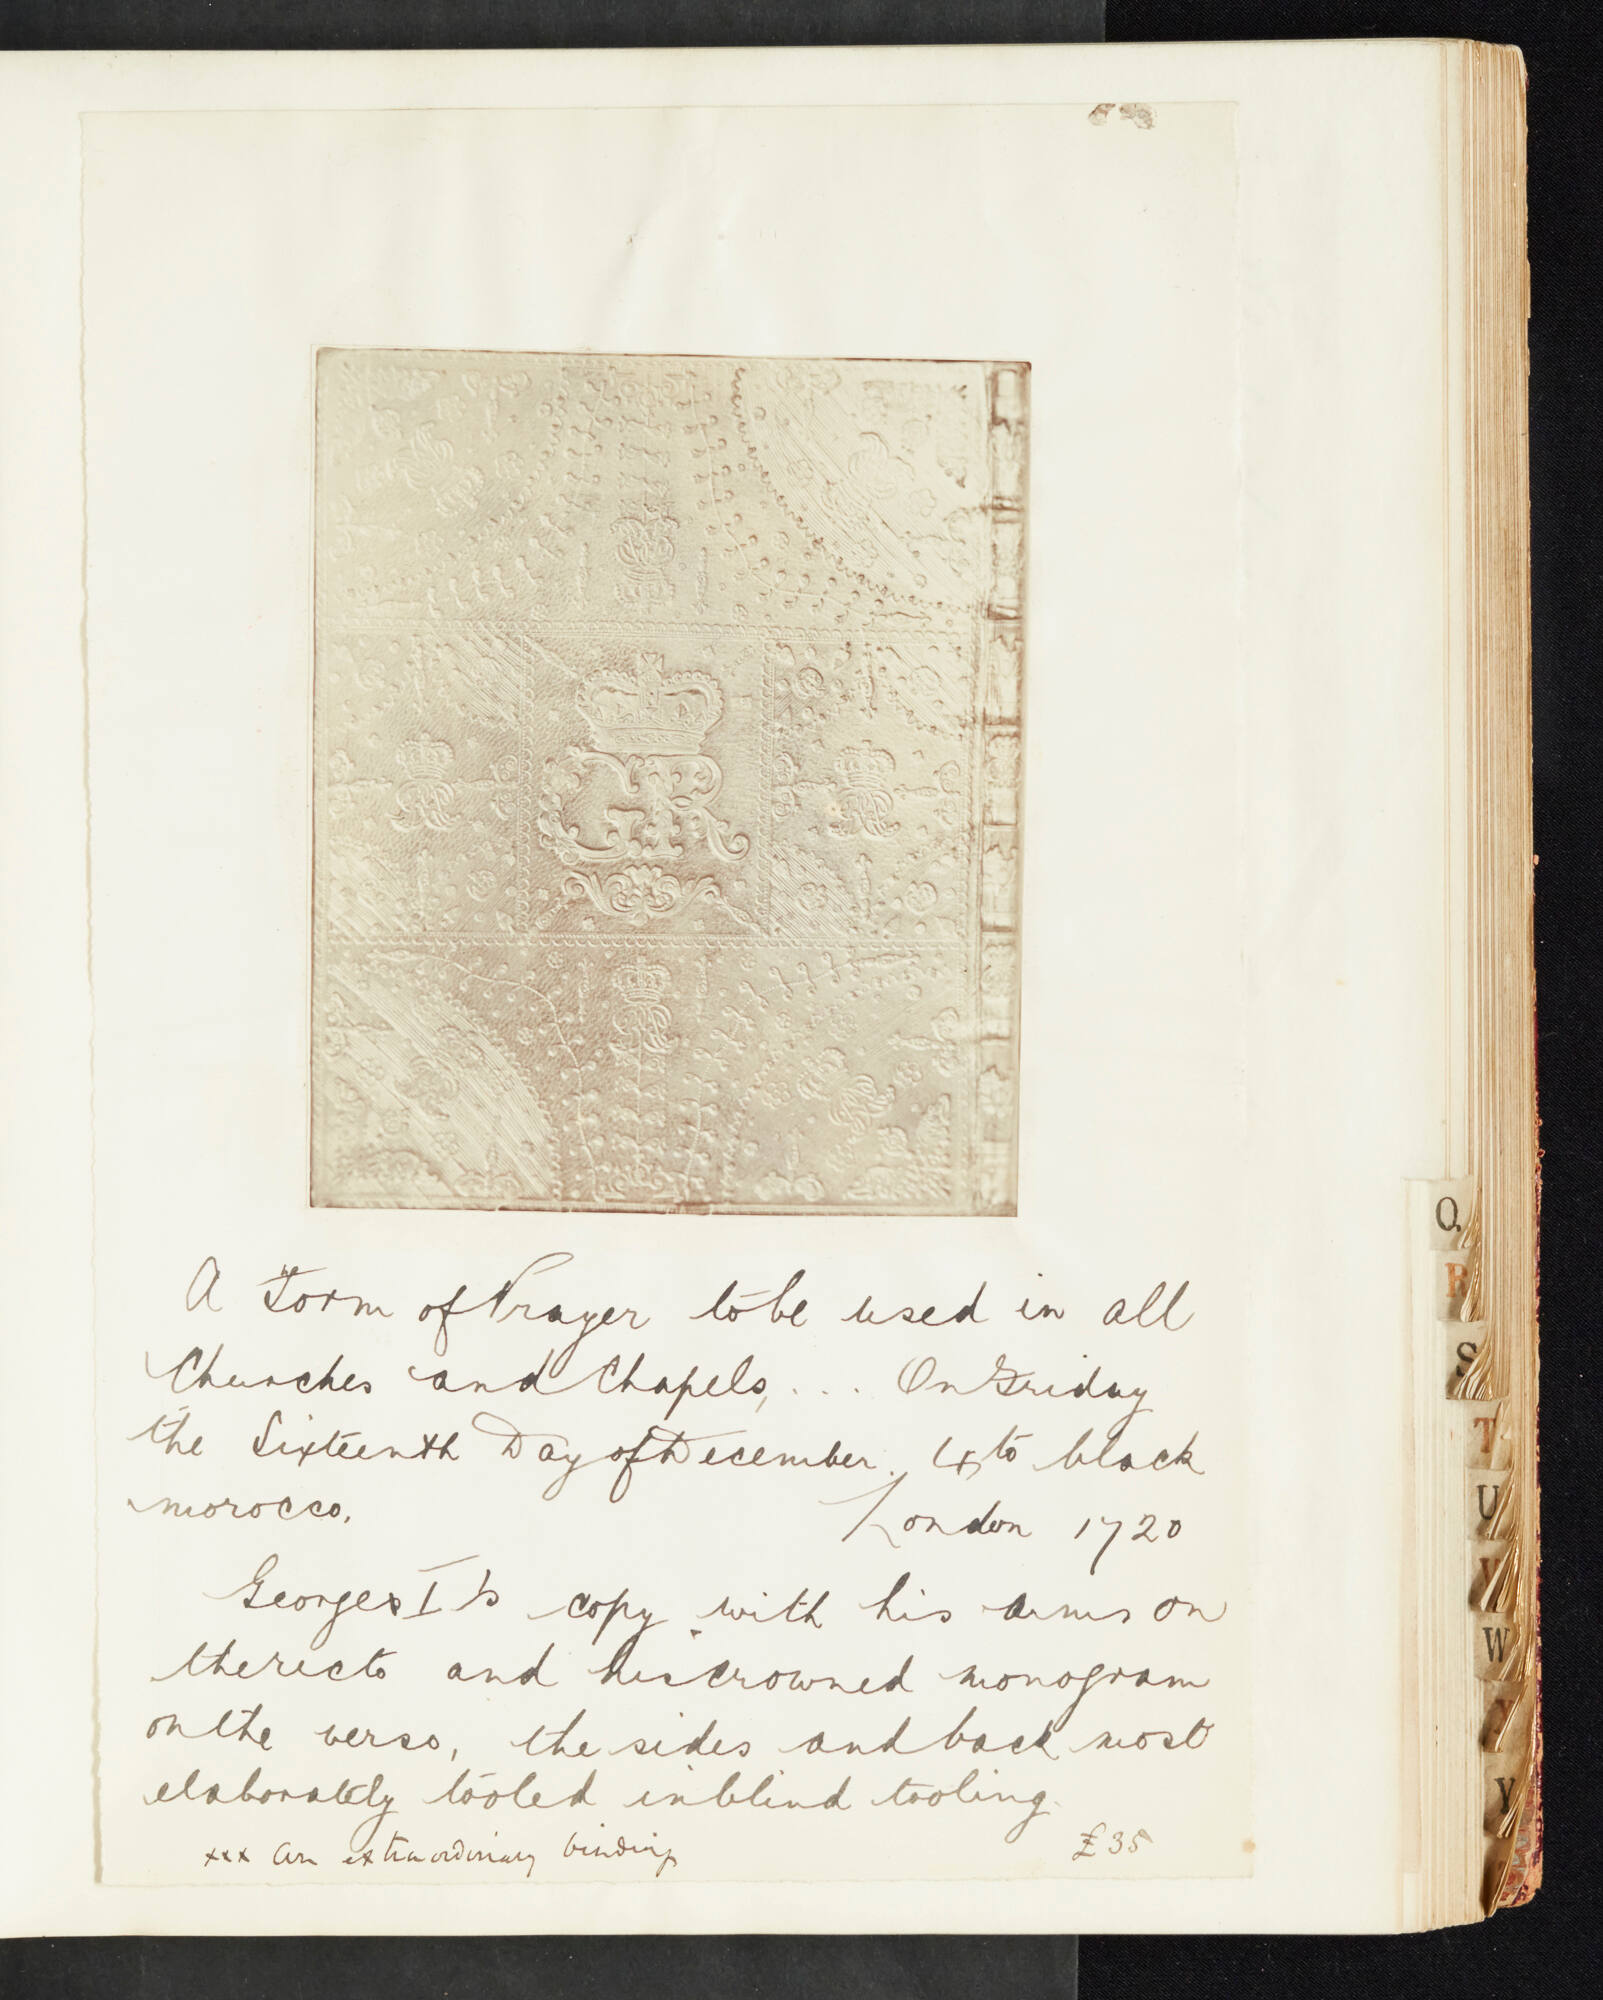 GR
A Form of Prayer to be used in all
Churches and Chapels, ... On Friday
the Sixteenth Day of December. 4to black
morocco.
London 1720
George I's copy with his arms on
the recto and his crowned monogram
on the verso, the sides and back most
elaborately tooled in blind tooling.
xxx An extraordinary binding
£35
Q
R
S
T
U
V
W
X
Y